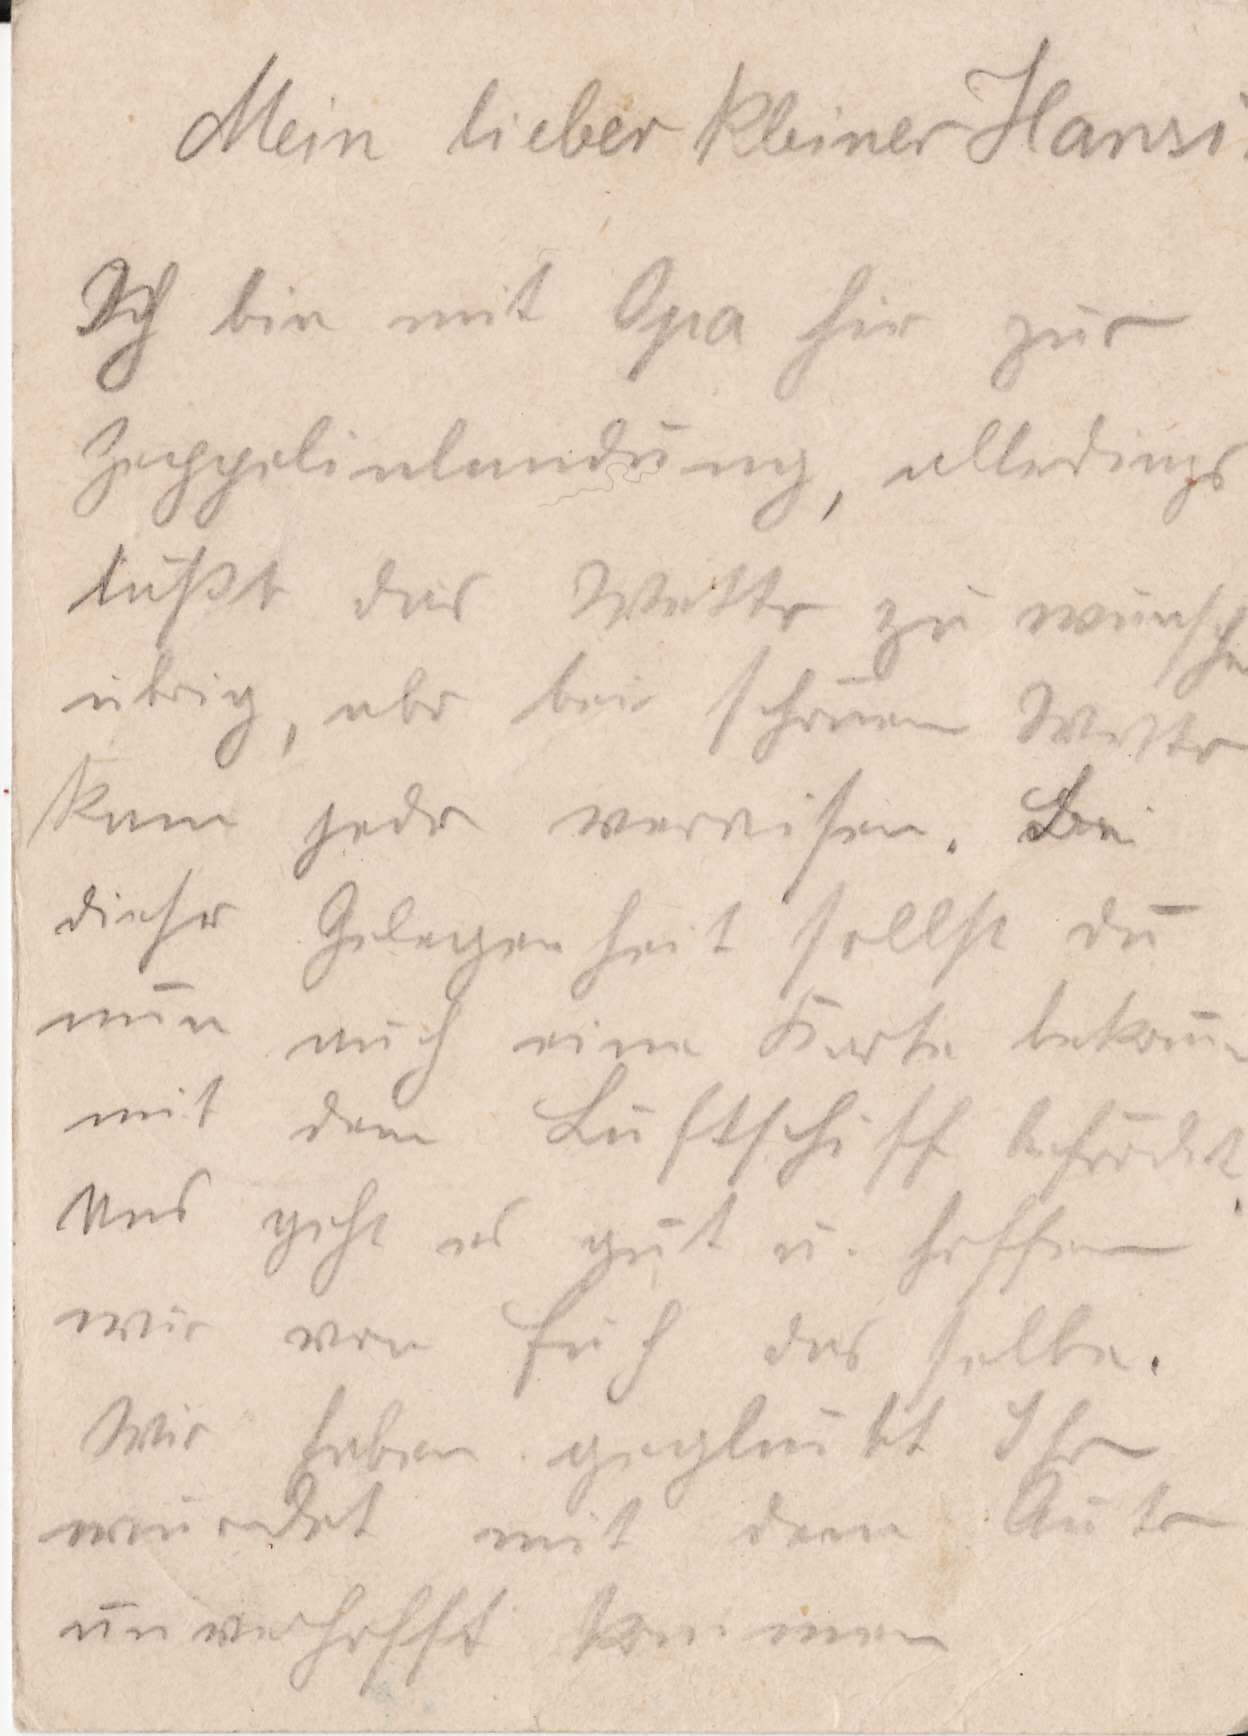 Mein lieber kleiner Hansi!
Ich bin mit Opa hier zur
Zeppelinlandung, allerdings
läßt das Wetter zu wünschen
übrig, aber bei schönen Wetter
kann jeder verreisen. Bei
dieser Gelegenheit sollst du
nun auch eine Karte bekommen
mit dem Luftschiff befördert.
Uns geht es gut u. hoffen
wir von Euch das selbe.
Wir haben geglaubt Ihr
würdet mit dem Auto
unverhofft kommen